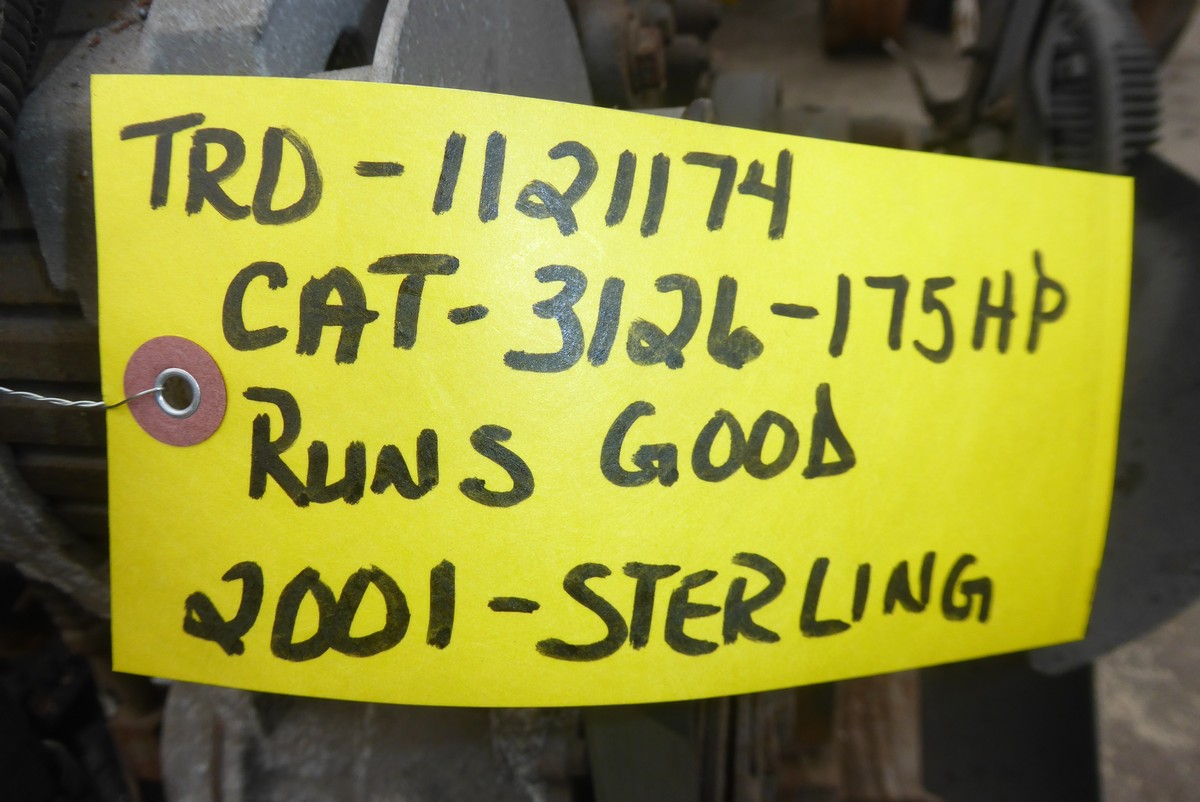 TRD-1121174
CAT-3126-175HP
RUNS GOOD
2001-STERLING